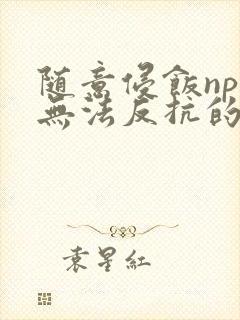 随意侵飯np
無法反抗的
袁星紅